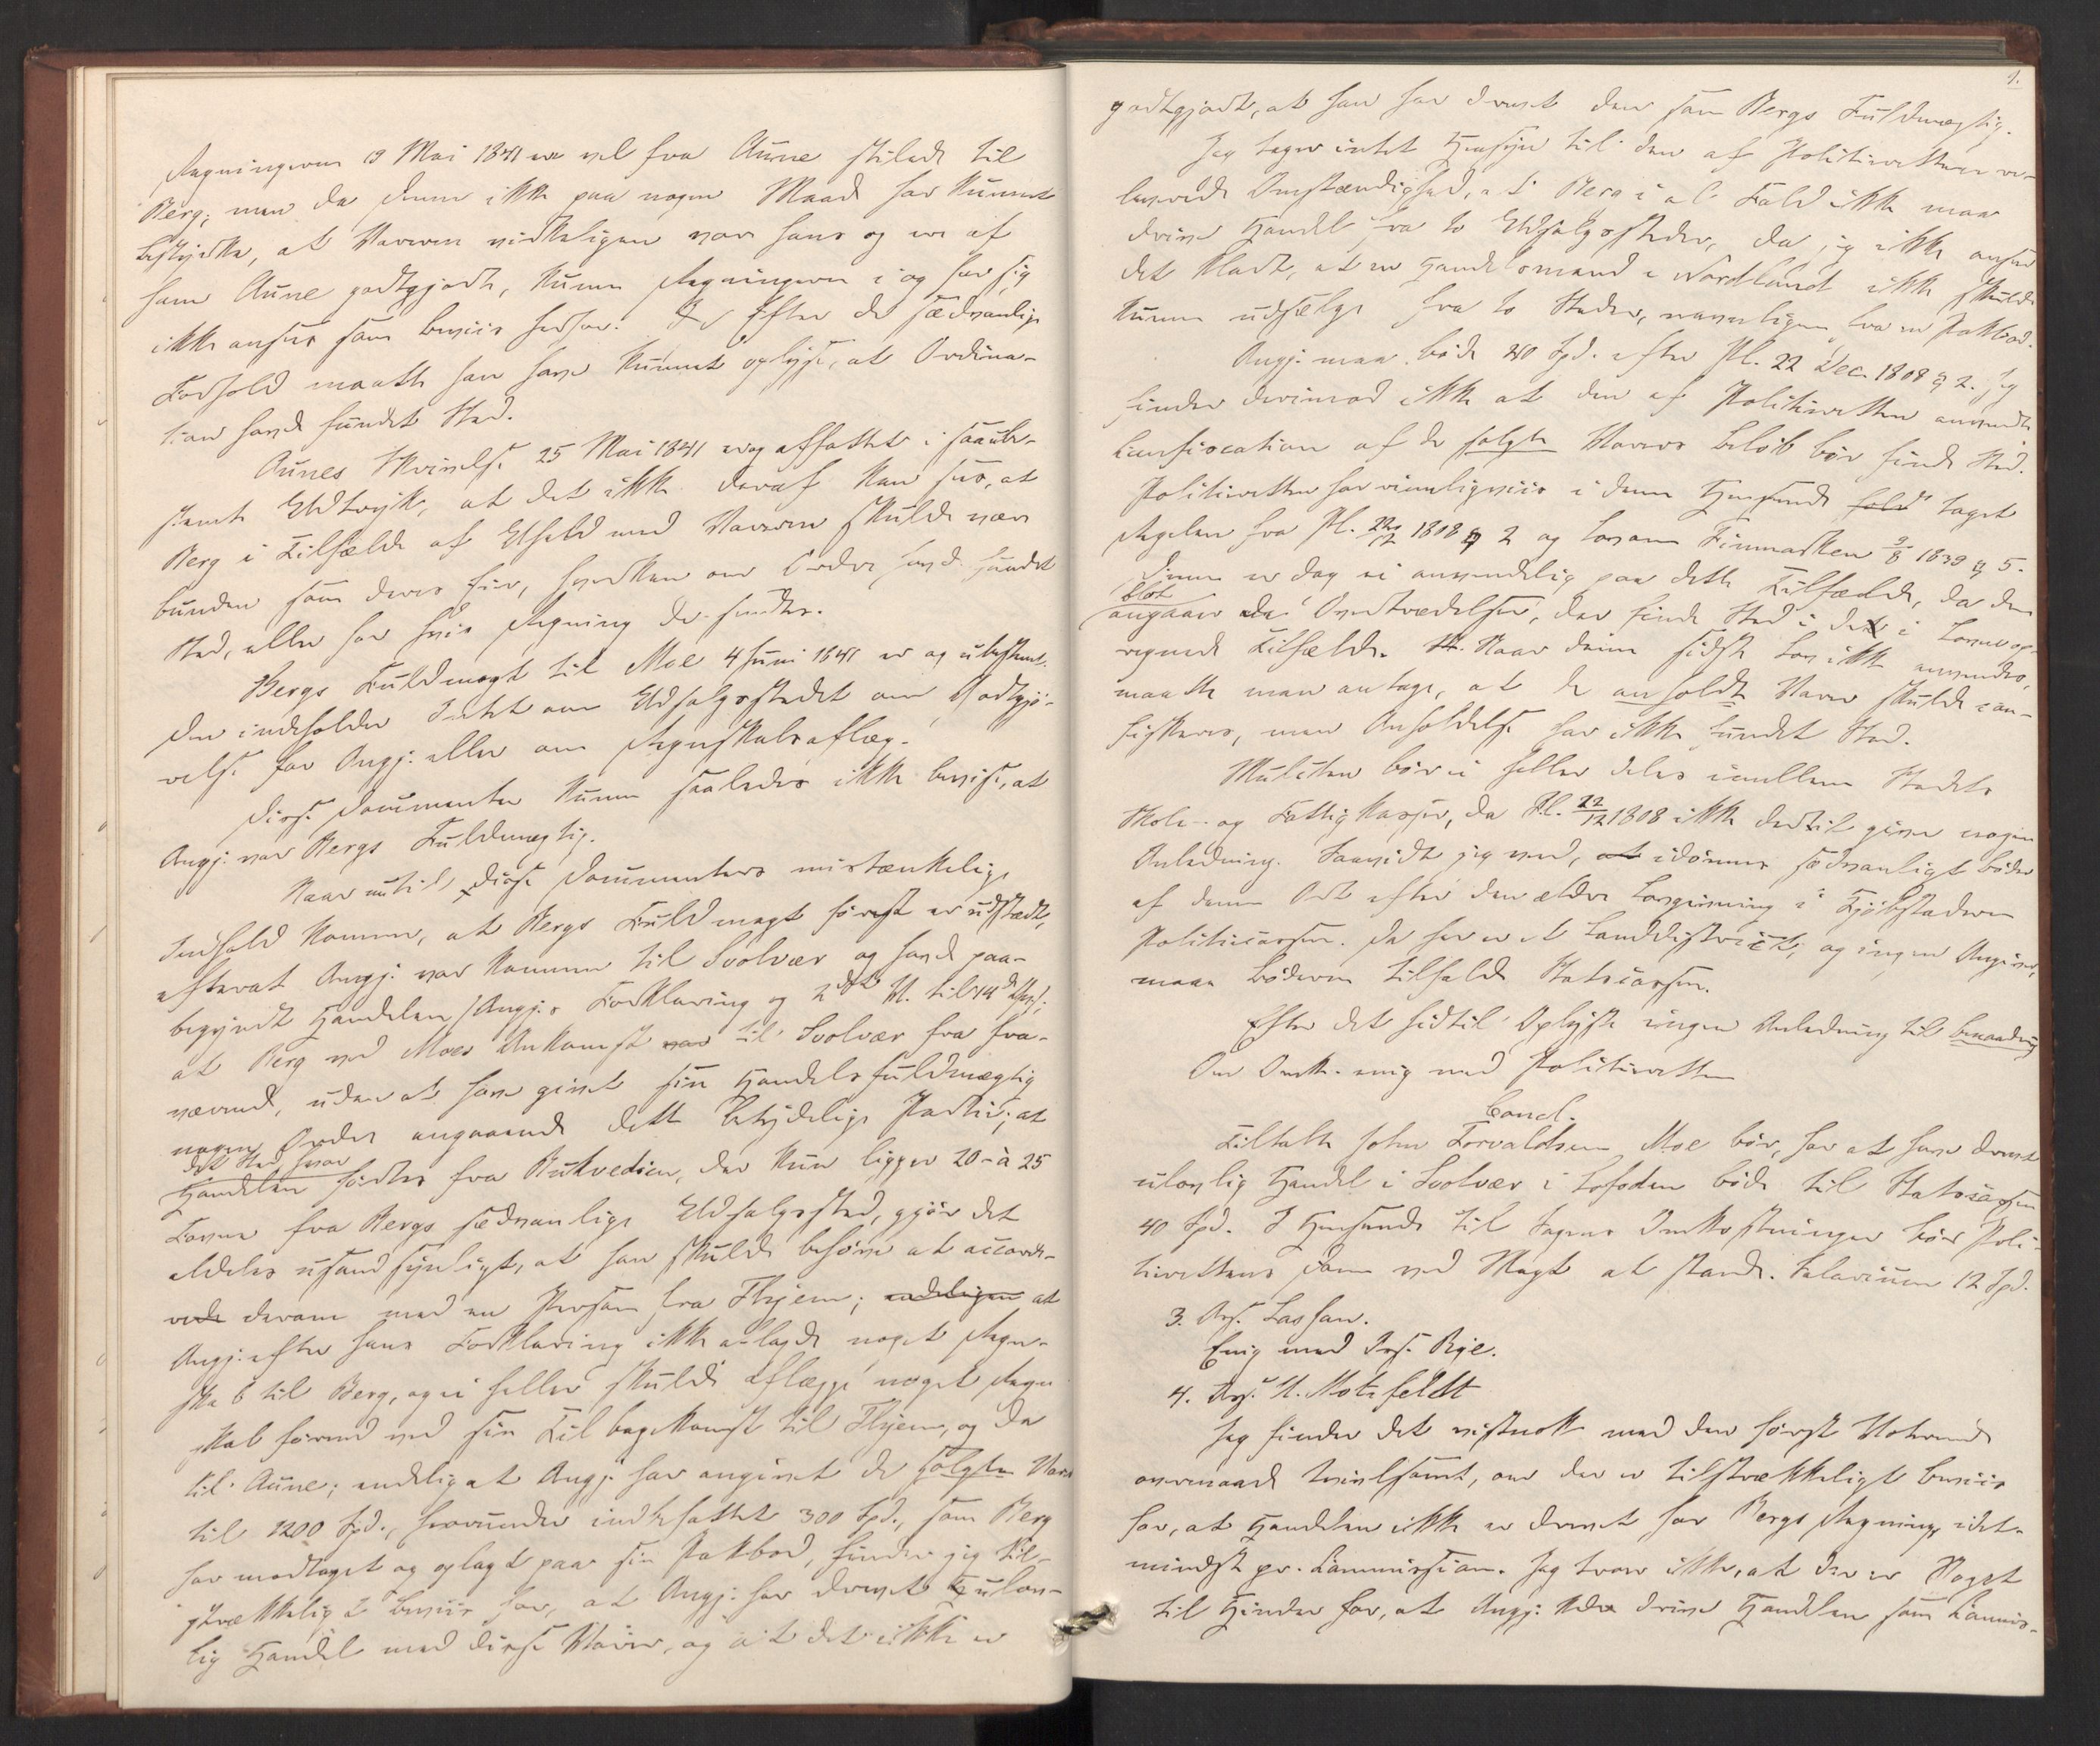 Regningerne 19 Mai 1841 ere vel fra Aune stilede til
Berg; men da denne ikke paa nogen Maade har kunnet
bestyrke, at Varerne virkeligen vare hans og ere af
ham Aune godtgjorte, kunne Regningerne i og for sig
ikke ansees som Beviis herfor. Efter de sædvanlige
Forhold maatte han have kunnet oplyse, at Ordina-
tion havde fundet Sted.
Aunes Skrivelse 25 Mai 1841 er og affattet i saa ube-
stemte Udtryk, at det ikke deraf kan sees, at
Berg i Tilfælde af Uheld med Varerne skulde være
bunden som deres Eier, hvorken om Ordre havde fundet
Sted, eller for hvis Regning de sendtes.
Bergs Fuldmagt til Moe 4 Juni 1841 er og ubestemt.
Den indeholder Intet om Udsalgsstedet om Godtgjö-
relse for Angj. eller om Regnskabsaflæg.
Disse Documenter kunne saaledes ikke bevise, at
Angj. var Bergs Fuldmægtig.
Naar nu til disse Documenters mistænkelige
Indhold kommer, at Bergs Fuldmagt först er udstædt,
efterat Angj. var kommen til Svolvær og havde paa-
begyndt Handelen /Angj.s Forklaring og 2det V. til 14de Sp./;
at Berg ved Moes Ankomst var til Svolvær fra fra-
værende, uden at have givet sin Handelsfuldmægtig
nogen Ordre angaaende dette betydelige Partie; at
det Sted hvor
Handelen førtes fra Kukvedien, der kun ligger 20 à 25
Favne fra Bergs sædvanlige Udsalgssted, gjör det
aldeles usandsynligt, at han skulde behöve at accorde-
rede derom med en Person fra Thjem; endeligen at
Angj. efter hans Forklaring ikke aflagde noget Regn-
skab til Berg, og ei heller skulde aflægge noget Regn
skab förend ved sin Tilbagekomst til Thjem, og da
til Aune; endelig at Angj. har angivet de solgte Varer
til 1200 Spd., herunder indbefattet 300 Spd., som Berg
har modtaget og oplagt paa sin Pakbod, finder jeg til-
strækkeligt Beviis for, at Angj. har drevet ulov-
lig Handel med disse Varer, og at det ikke er
9.
godtgjort, at han har drevet den som Bergs Fuldmægtig.
Jeg tager intet Hensyn til den af Politieretten re-
leverede Omstændighed, at Berg i al Fald ikke maa
drive Handel fra to Udsalgssteder, da jeg ikke anseer
det klart, at en Handelsmand i Nordland ikke skulde
kunne udsælge fra to Steder, navnligen fra en Pakbod.
Angj. maa bøde 40 Spd. efter Pl. 22 Dec. 1808 § 2. Jeg
finder derimod ikke at den af Politieretten anvendte
Confiscation af de solgte Varers Belöb bör finde Sted.
Politieretten har rimeligviis i denne Henseende taget
Regelen fra Pl. 22/12 1808 § 2 og Lov om Finmarken 9/8 1839 § 5.
Denne er dog ei anvendelig paa dette Tilfælde, da den
blot
angaaer de Overtrædelser, der finde Sted i de i Loven op-
regnede Tilfælde. Naar denne sidste Lov ikke anvendes,
maatte man antage, at de anholdte Varer skulde con-
fiskeres, men Anholdelse har ikke fundet Sted.
Mulcten bör ei heller deles imellem Stedets
Skole- og Fattigkasser, da Pl. 22/12 1808 ikke dertil giver nogen
Anledning. Saavidt jeg veed, at idömmes sædvanligt Böder
af denne Art efter den ældre Lovgivning i Kjöbstæderne
Politiecassen. Da her er et Landdistrict, og ingen Angiver,
maa Böderne tilfalde Statscassen.
Efter det hidtil Oplyste ingen Anledning til Benaadning
Om Omk. enig med Politieretten
Concl.
Tiltalte John Torvaldsen Moe bör, for at have drevet
ulovlig Handel i Svolvær i Lofoden böde til Statscassen
40 Spd. I Henseende til Sagens Omkostninger bör Poli-
tierettens Dom ved Magt at stande. Salarium 12 Spd.
3. Ass. Lasson.
Enig med Ass. Bye.
4. Ass. U. Motzfeldt
Jeg finder det vistnok med den förste Voterende
overmaade tvivlsomt, om der er tilstrækkeligt Beviis
for, at Handelen ikke er drevet for Bergs Regning idet-
mindste pr. Commission. Jeg troer ikke, at der er Noget
til Hinder for, at Angj. kan drive Handelen som Commis-